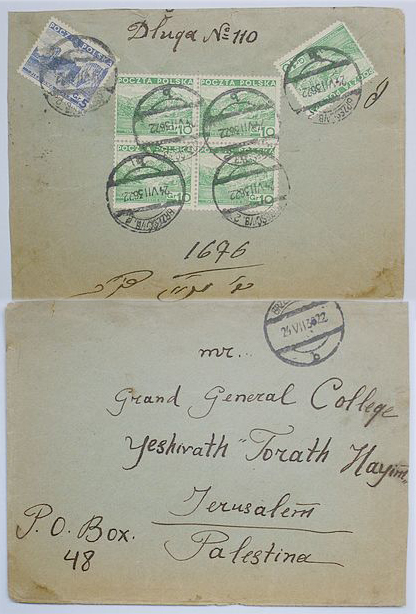 Długa № 110
POCZTA POLSKA
GR. 5
POCZTA POLSKA
POCZTA POLSKA
GR. 10
GR. 10
POCZTA POLSKA
POCZTA POLSKA
GR. 10
GR. 10
24 VII 36 22
b
1676
24 VII 36 22
b
mr.
Grand General College
Yeshivath "Torath Hayim,
Jerusalem
Palestina
P.O. Box.
48